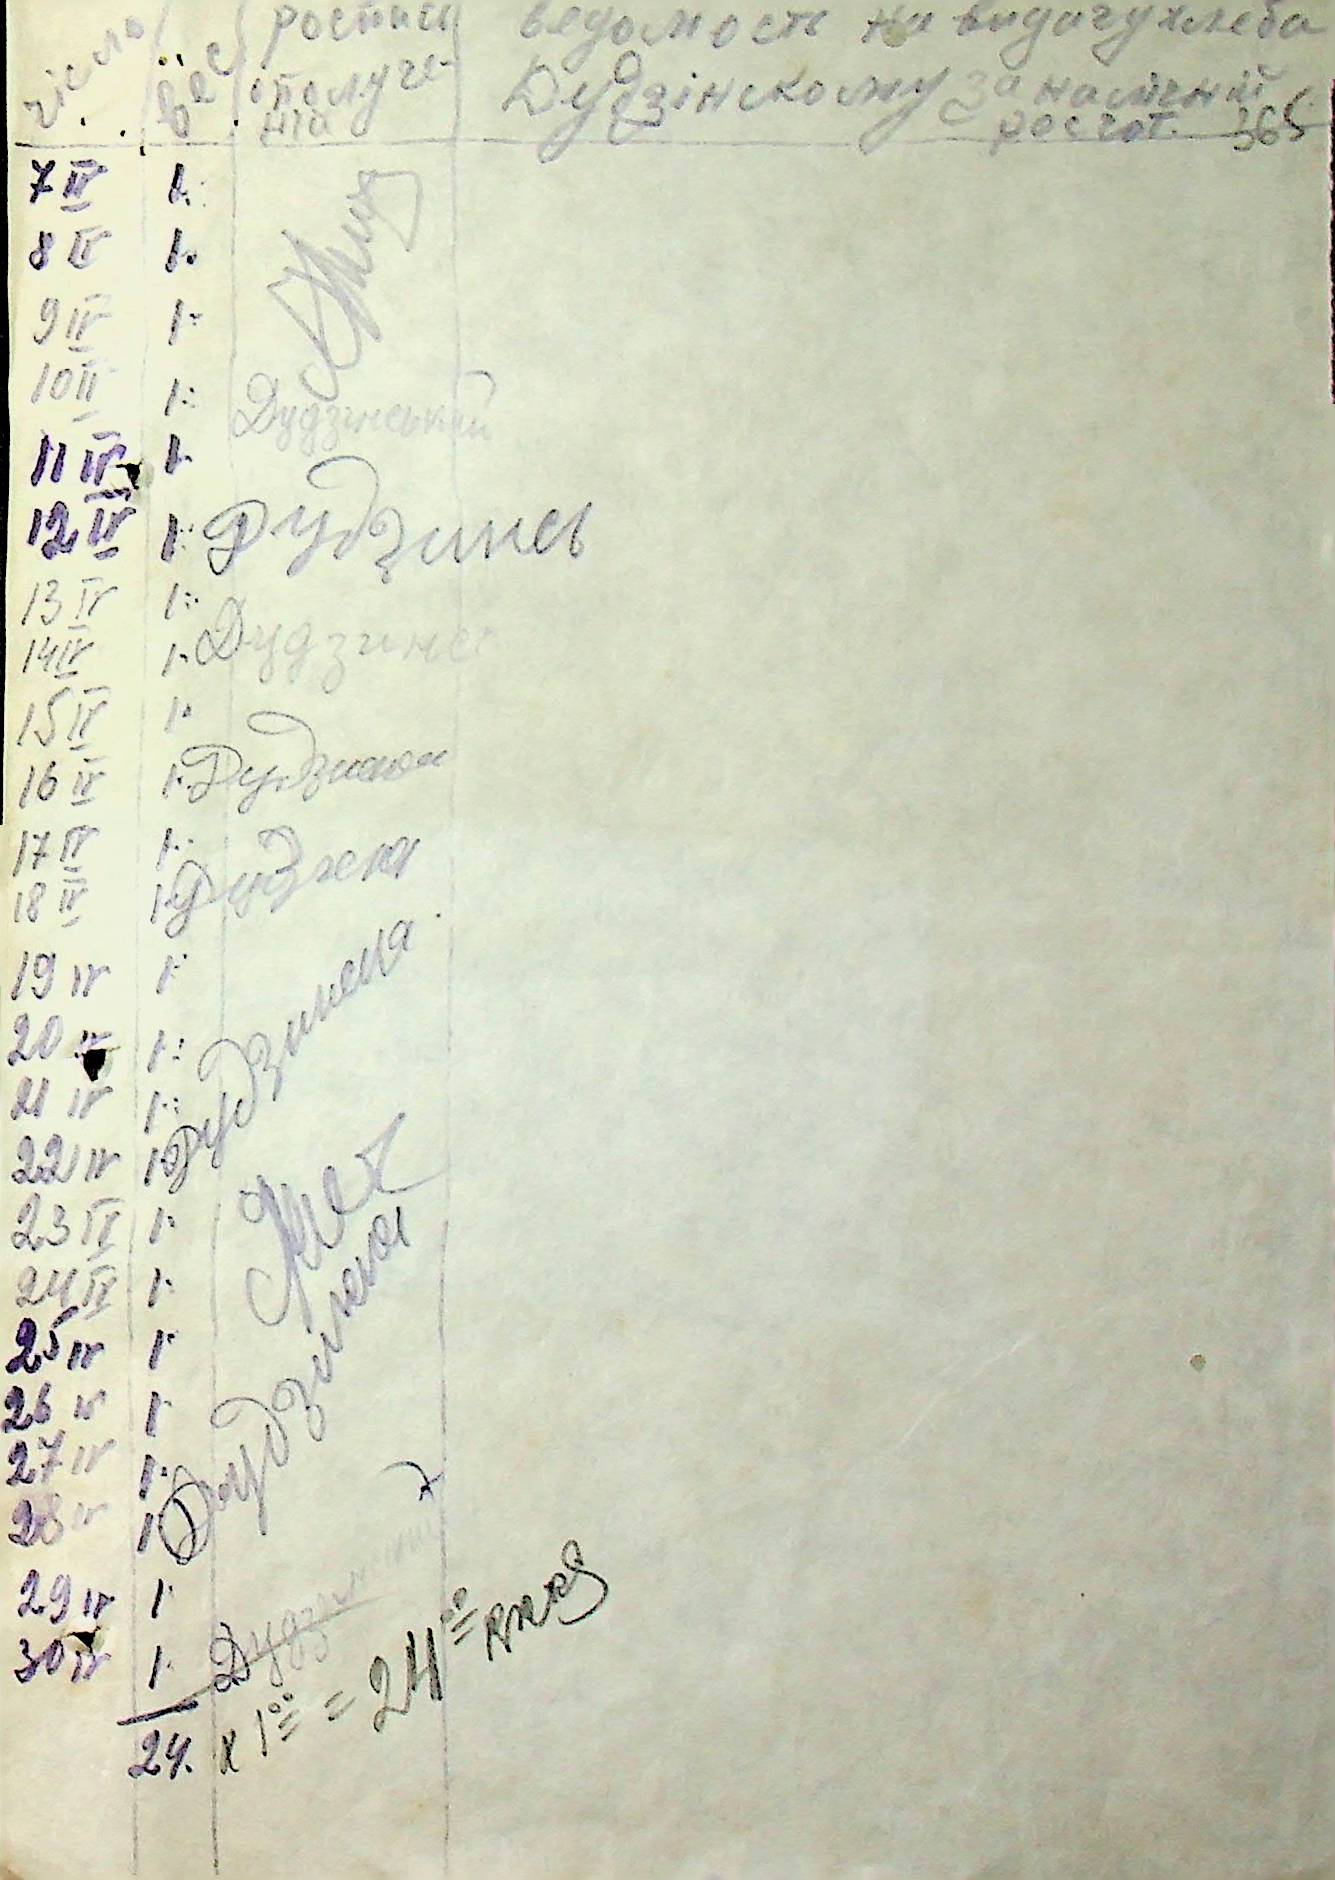 число вес роспись о получения ведомость на видачу хлеба
Дудзінскому за налічній
росчот. 365
7 IV 1.
8 IV 1.
9 IV 1.
10 IV 1. Дудзінський
11 IV 1.
12 IV 1. Дудзинсь
13 IV 1.
14 IV 1. Дудзинс
15 IV 1.
16 IV 1.
17 IV 1.
18 IV 1.
19 IV 1.
20 IV 1.
21 IV 1.
22 IV 1.
23 IV 1.
24 IV 1.
25 IV 1.
26 IV 1.
27 IV 1.
28 IV 1.
29 IV 1.
30 IV 1.
24. х 1 00 = 24 00